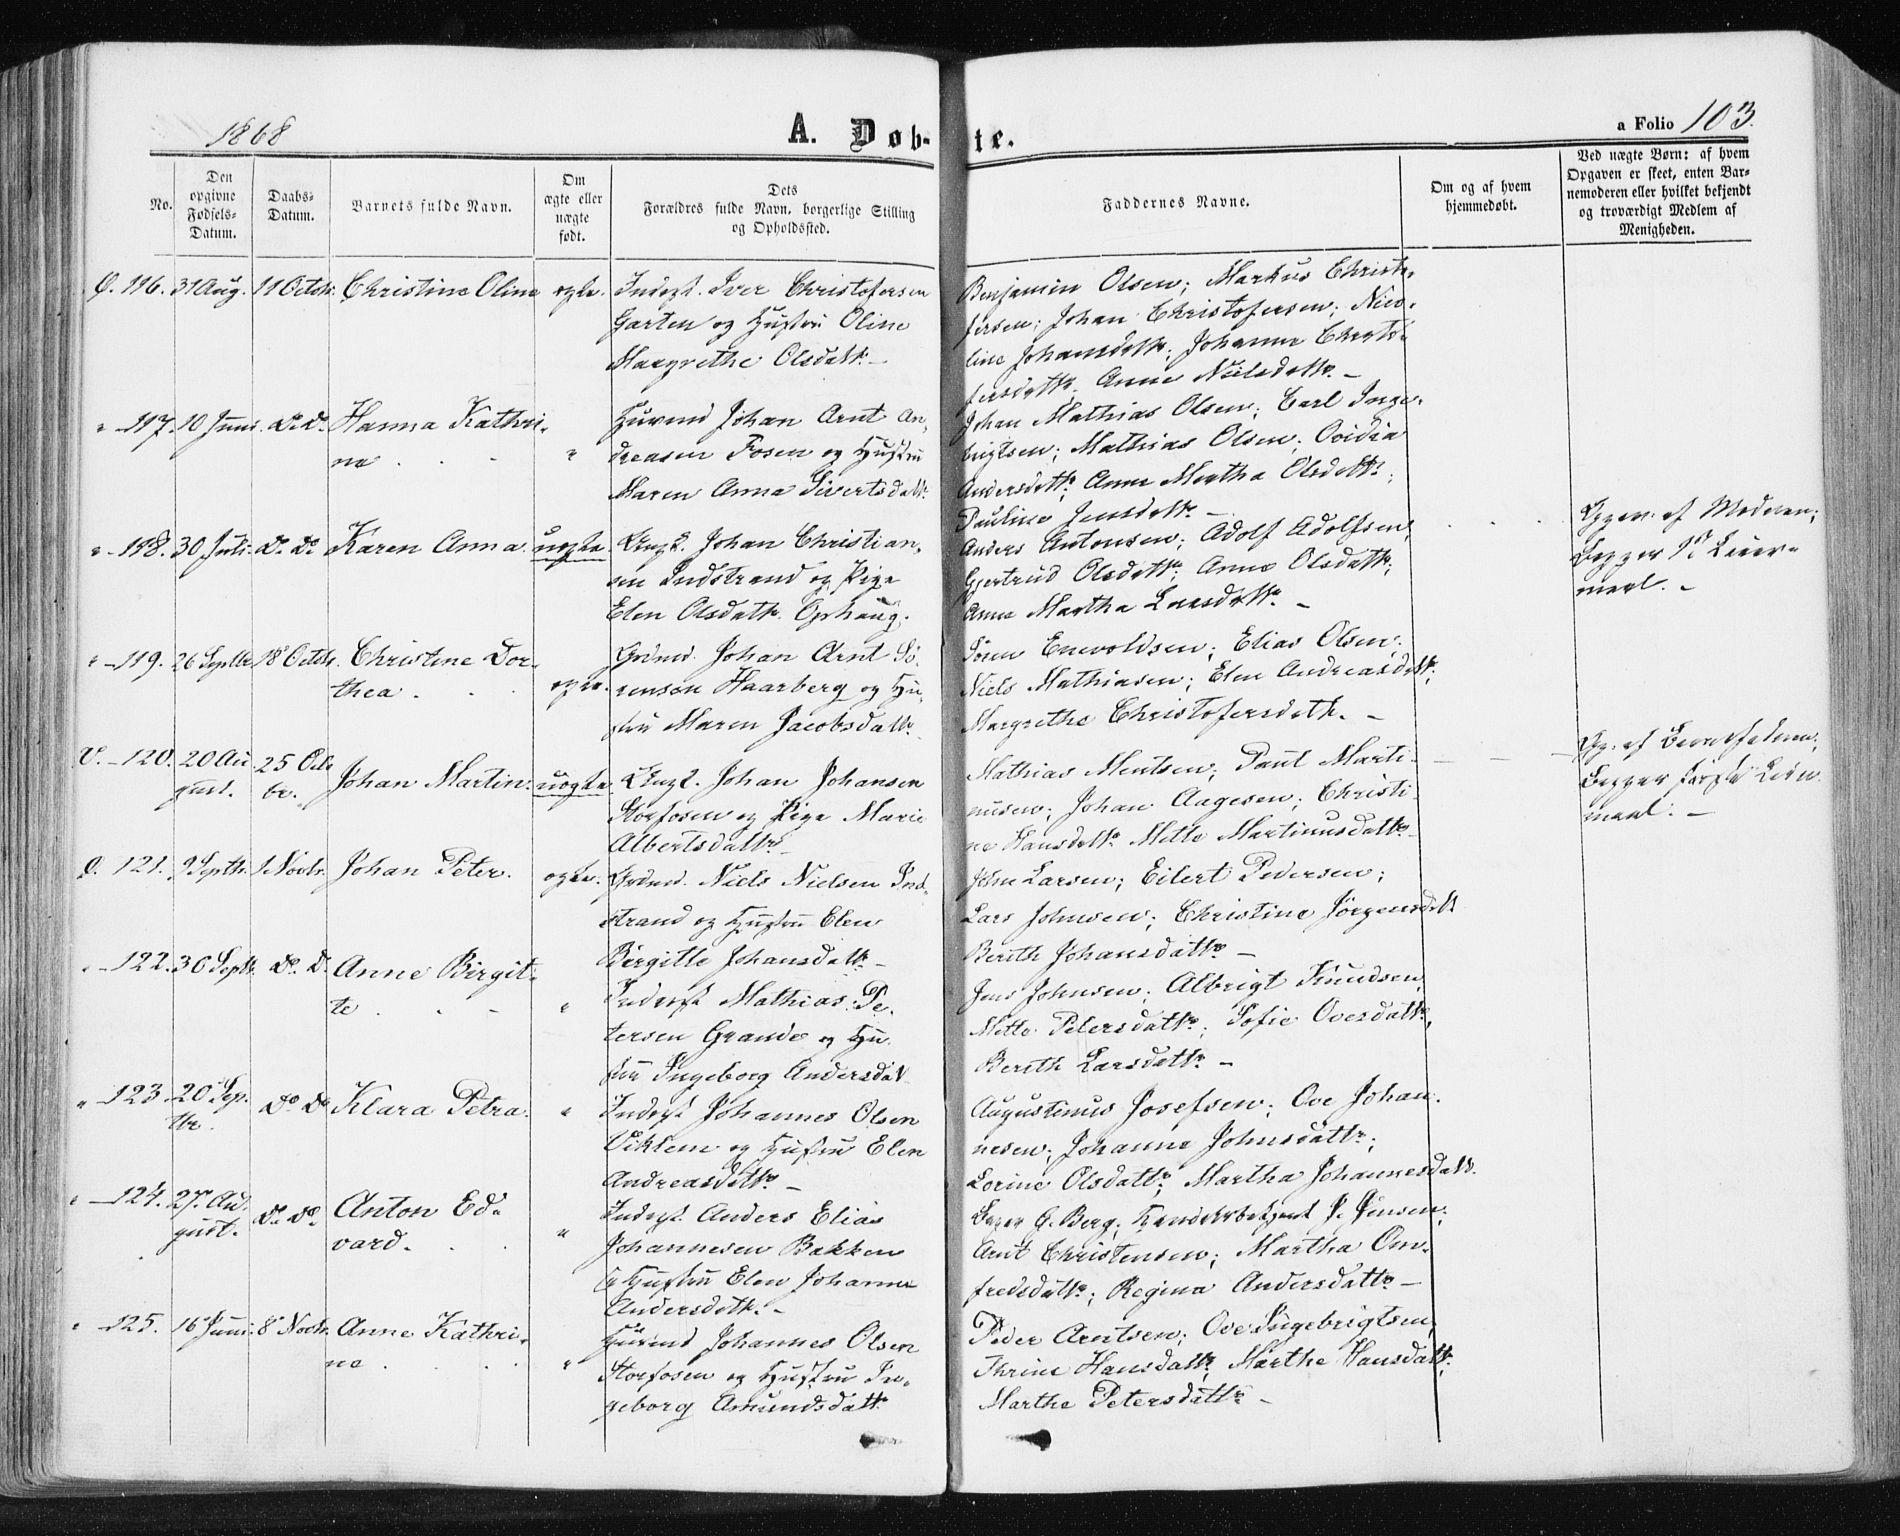 1868
A. Døb-
te.
a Folio 103.
No.
Den
opgivne
Fødsels-
Datum.
Daabs-
Datum.
Barnets fulde Navn.
Om
ægte eller
uægte
født.
Dets
Forældres fulde Navn, borgerlige Stilling
og Opholdssted.
Faddernes Navne.
Om og af hvem
hjemmedøbt.
Ved uægte Børn: af hvem
Opgaven er skeet, enten Bar-
nemoderen eller hvilket bekjendt
og troværdigt Medlem af
Menigheden.
116. 31 Aug. 11 Octbr. Christine Oline ægte. Inderst. Iver Christofersen
Garten og Hustru Oline
Margrethe Olsdatr.
Benjamin Olsen; Markus Christo-
fersen; Johan Christofersen; Nico-
line Johansdatr; Johanna Christo-
fersdatr. Anne Nielsdatr. -
" - 117. 10 Juni. Do Do. Hanna Kathri-
ne . . - " Huusmd Johan Arnt An-
dreasen Fosen og Hustru
Maren Anna Sivertsdatr.
Johan Mathias Olsen; Carl Inge-
brigtsen; Mathias Olsen; Ovidia
Andersdatr; Anne Martha Olsdatr;
Pauline Jensdatr -
" - 118. 30 Juli. Do Do Karen Anna. uægte. Ungk. Johan Christian-
sen Indstrand og Pige
Elen Olsdatr. Ophaug.
Anders Antonsen; Adolf Adolfsen;
Gjertrud Olsdatr; Anne Olsdatr;
Anne Martha Larsdatr. -
Opgiv. af Moderen;
Begges 1ste Leier-
maal. -
" - 119. 26 Septbr 18 Octbr. Christine Dor-
thea . ægte. Grdmd. Johan Arnt Sø-
rensen Haarberg og Hu-
stru Maren Jacobsdatr.
Sören Enevoldsen; Elias Olsen;
Niels Mathiasen; Elen Andreasdatr;
Margrethe Christofersdatr. -
- 120. 20 Au-
gust. 25 Octo-
br. Johan Martin. uægte. Ungk. Johan Johansen
Storfosen og Pige Marie
Albertsdatter
Mathias Mentsen; Paul Marti-
nusen; Johan Aagesen; Christi-
ne Hansdatr. Mette Martinusdatr.
Opg. af Barnefaderen;
Begges første Leier-
maal. -
121. 9 Septbr. 1 Novbr. Johan Peter. ægte. Grdmd. Niels Nielsen Ind-
strand og Hustru Elen
Birgitte Johansdatr. -
John Larsen; Eilert Pedersen;
Lars Johnsen; Christine Jörgensdatr
Berith Johansdatr. -
- 122. 30 Septbr. Do. Do. Anne Birgit-
te . . - " Inderst Mathias Pe-
tersen Grande og Hu-
stru Ingeborg Andersdatr
Jens Johnsen; Albrigt Knudsen,
Mette Petersdatr; Sofie Ovesdatr,
Berith Larsdatr. -
" - 123. 20 Sep-
tbr. Do Do Klara Petra. " Inderst Johannes Olsen
Viklem og Hustru Elen
Andreasdatr. -
Augustinus Josefsen; Ove Johan-
nesen; Johanna Johnsdatr;
Lorine Olsdatr; Martha Johannesdatr.
" - 124. 27. Au-
gust. Do. Do. Anton Ed-
vard. " Inderst. Anders Elias
Johannesen Bakken
og Hustru Elen Johanna
Andersdatr. -
G. Berg; P. Jensen;
Arnt Christensen; Martha Om-
fredsdatr; Regina Andersdatr -
" - 125. 16 Juni. 8 Novbr. Anne Kathri-
ne . . . " Huusmd Johannes Olsen
Storfosen og Hustru In-
geborg Amundsdatr.
Peder Arntsen; Ove Ingebrigtsen,
Thrine Hansdatr; Marthe Hansdatr,
Marthe Petersdatr. -